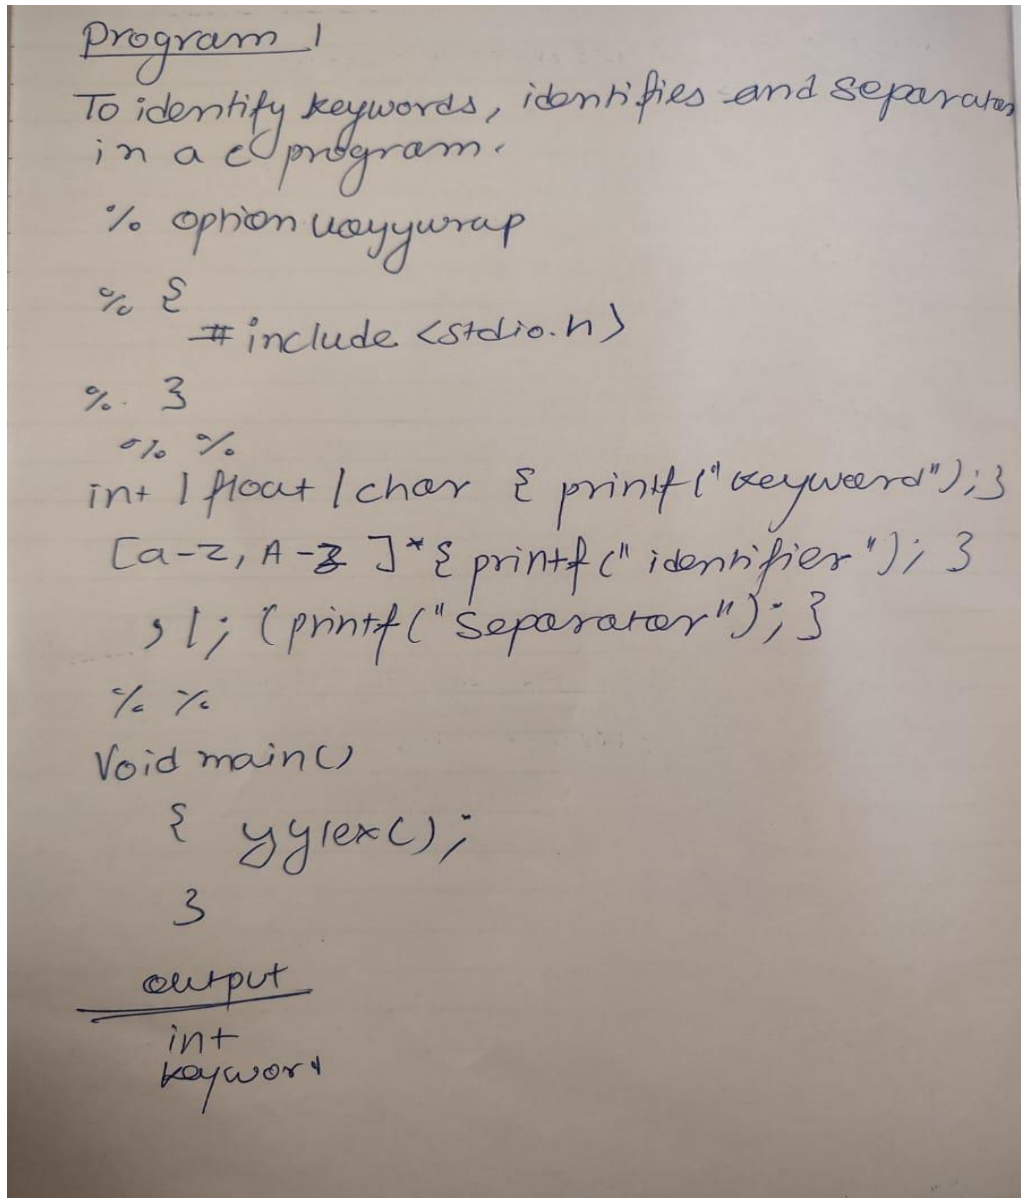 Program 1
To identify keywords, identifies and Separator
in a c program.
% option noyywrap
% {
# include <stdio.h>
% }
% %
int | float | char { printf("keyword"); }
[a-z, A-Z ]* { printf(" identifier "); }
, | ; { printf(" Separator "); }
% %
Void main()
{ yylex();
}
output
int
keyword